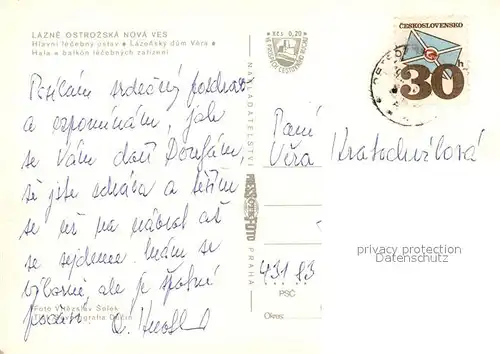 LÁZNĚ OSTROŽSKÁ NOVÁ VES
Hlavní léčebný ústav ● Lázeňský dům Věra ●
Hala a balkón léčebných zařízení
Posílám srdečný pozdrav
a vzpomínám, jak
se Vám daří Doufám,
že jste zdráva a těším
se už na návrat až
se sejdeme. Mám se
výborně, ale je špatné
počasí.
Foto Vítězslav Solek
Kčs 0,20
NAKLADATELSTVÍ
PRESSFOTO
PRAHA
ČESKOSLOVENSKO
30
Paní
Věra Kratochvílová
431 83
PSČ
Okres:
privacy protection
Datenschutz